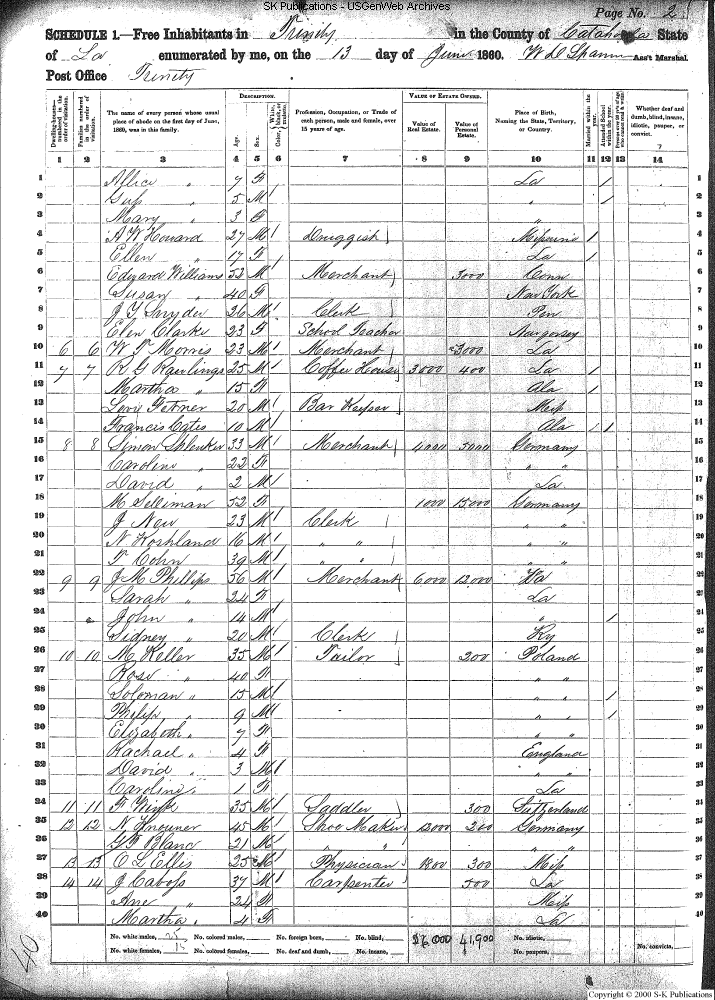 SK Publications - USGenWeb Archives
Page No. 2
SCHEDULE 1.—Free Inhabitants in Trinity in the County of Catahoola State
of La enumerated by me, on the 13 day of June 1860. Ass't Marshal.
Post Office Trinity
DESCRIPTION. VALUE OF ESTATE OWNED.
Dwelling-houses—numbered in the order of visitation. Families numbered in the order of visitation. The name of every person whose usual place of abode on the first day of June, 1860, was in this family. Age. Sex. Color, Profession, Occupation, or Trade of each person, male and female, over 15 years of age. Value of Real Estate. Value of Personal Estate. Place of Birth, Naming the State, Territory, or Country. Married within the year. Attended School within the year. Whether deaf and dumb, blind, insane, idiotic, pauper, or convict.
1 2 3 4 5 6 7 8 9 10 11 12 13 14
1 Allice " 7 F La / 1
2 Gus " 5 M / " / 2
3 Mary " 3 F " 3
4 A W Howard 27 M / Druggist Missouri / 4
5 Ellen " 17 F La / 5
6 Edward Williams 52 M Merchant 3000 Conn 6
7 Susan " 40 F New York 7
8 J Y Snyder 26 M / Clerk Pen 8
9 Elen Clarke 23 F School Teacher 9
10 6 6 Morris 23 M / Merchant 3000 La 10
11 7 7 R G Rawlings 25 M / Coffee House 3000 400 La / 11
12 Martha " 15 F Ala / 12
13 20 M / Bar Keeper Miss 13
14 Francis Cates 10 M / Ala / / 14
15 8 8 Simon 33 M / Merchant 4000 5000 Germany 15
16 Caroline " 22 F " " 16
17 David " 2 M / La 17
18 M Selliman 52 F 1000 15000 Germany 18
19 J New 23 M / Clerk " " 19
20 16 M / " " " " 20
21 Cohn 39 M / " " " " 21
22 9 9 J M Phillips 56 M / Merchant 6000 12000 Va 22
23 Sarah " 24 F La 23
24 John " 14 M " / 24
25 Sidney " 20 M / Clerk Ky 25
26 10 10 M Keller 35 M / Tailor 200 Poland 26
27 Rose " 40 F " " 27
28 Soloman " 15 M / " " / 28
29 Philip " 9 M / " " / 29
30 Elizabeth " 7 F " " 30
31 Rachael " 4 F England 31
32 David " 3 M / " " 32
33 Caroline " 1 F La 33
34 11 11 35 M / Saddler 300 Switzerland 34
35 12 12 45 M Shoe Maker 12000 200 Germany 35
36 Blanc 21 M / " " " " 36
37 13 13 C L Ellis 25 M / Physician 300 Miss 37
38 14 14 37 M / Carpenter 500 La 38
39 Ann " 24 F Miss 39
40 Martha " 4 F La 40
No. white males, 25 No. colored males, No. foreign born, No. blind, 41,900 No. idiotic,
No. white females, 15 No. colored females, No. deaf and dumb, No. insane, No. paupers, No. convicts,
40
Copyright © 2000 S-K Publications